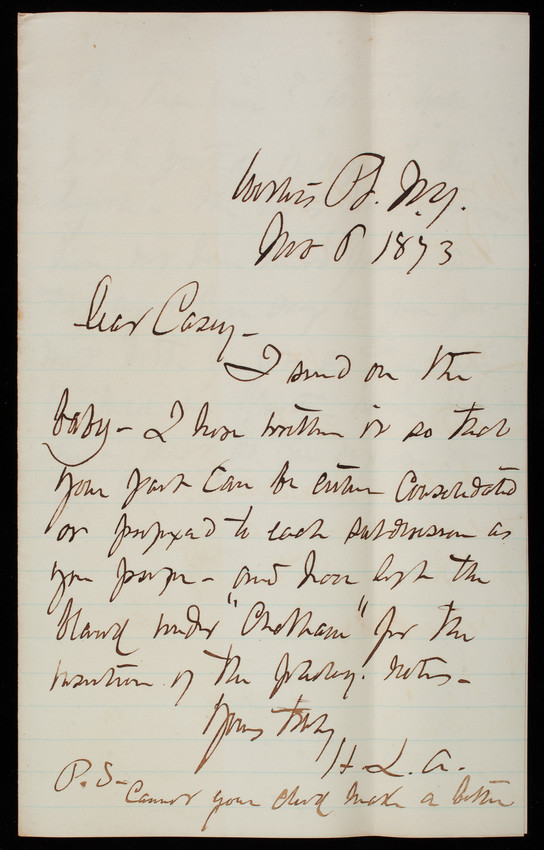 Willets Pt. N.Y.
Nov 6 1873
Dear Casey—
I send on the
baby— I have written it so that
your part can be either Consolidated
or prefixed to each subdivision as
you prefer— and have left the
blank under "Chatham" for the
insertion of the notes—
Yours truly
H. L. A.
P.S— Cannot your clerk make a better